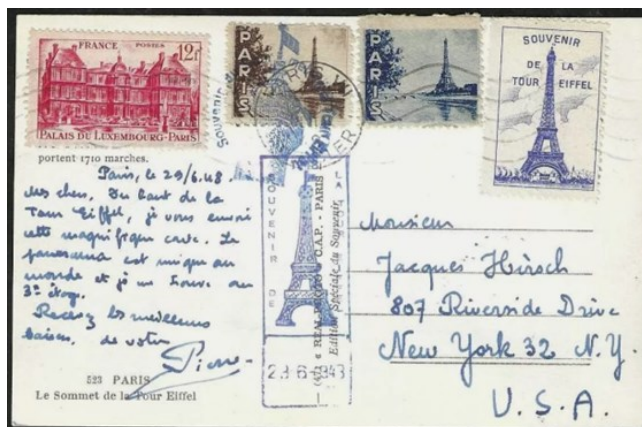 FRANCE POSTES 12F
PALAIS DU LUXEMBOURG-PARIS
PARIS
PARIS
SOUVENIR
DE LA
TOUR EIFFEL
portent 1710 marches.
Paris, le 29/6.48.
Du haut de la
Tour Eiffel, je vous envoie
cette magnifique carte. Le
panorama est unique au
monde et je me trouve au
3e étage.
Recevez les meilleurs
baisers de votre
Pierre
523 PARIS
Le Sommet de la Tour Eiffel
SOUVENIR DE LA
C.A.P. - PARIS
Edition Spéciale du Souvenir
Monsieur
Jacques Hirsch
807 Riverside Drive
New York 32 N.Y.
U.S.A.